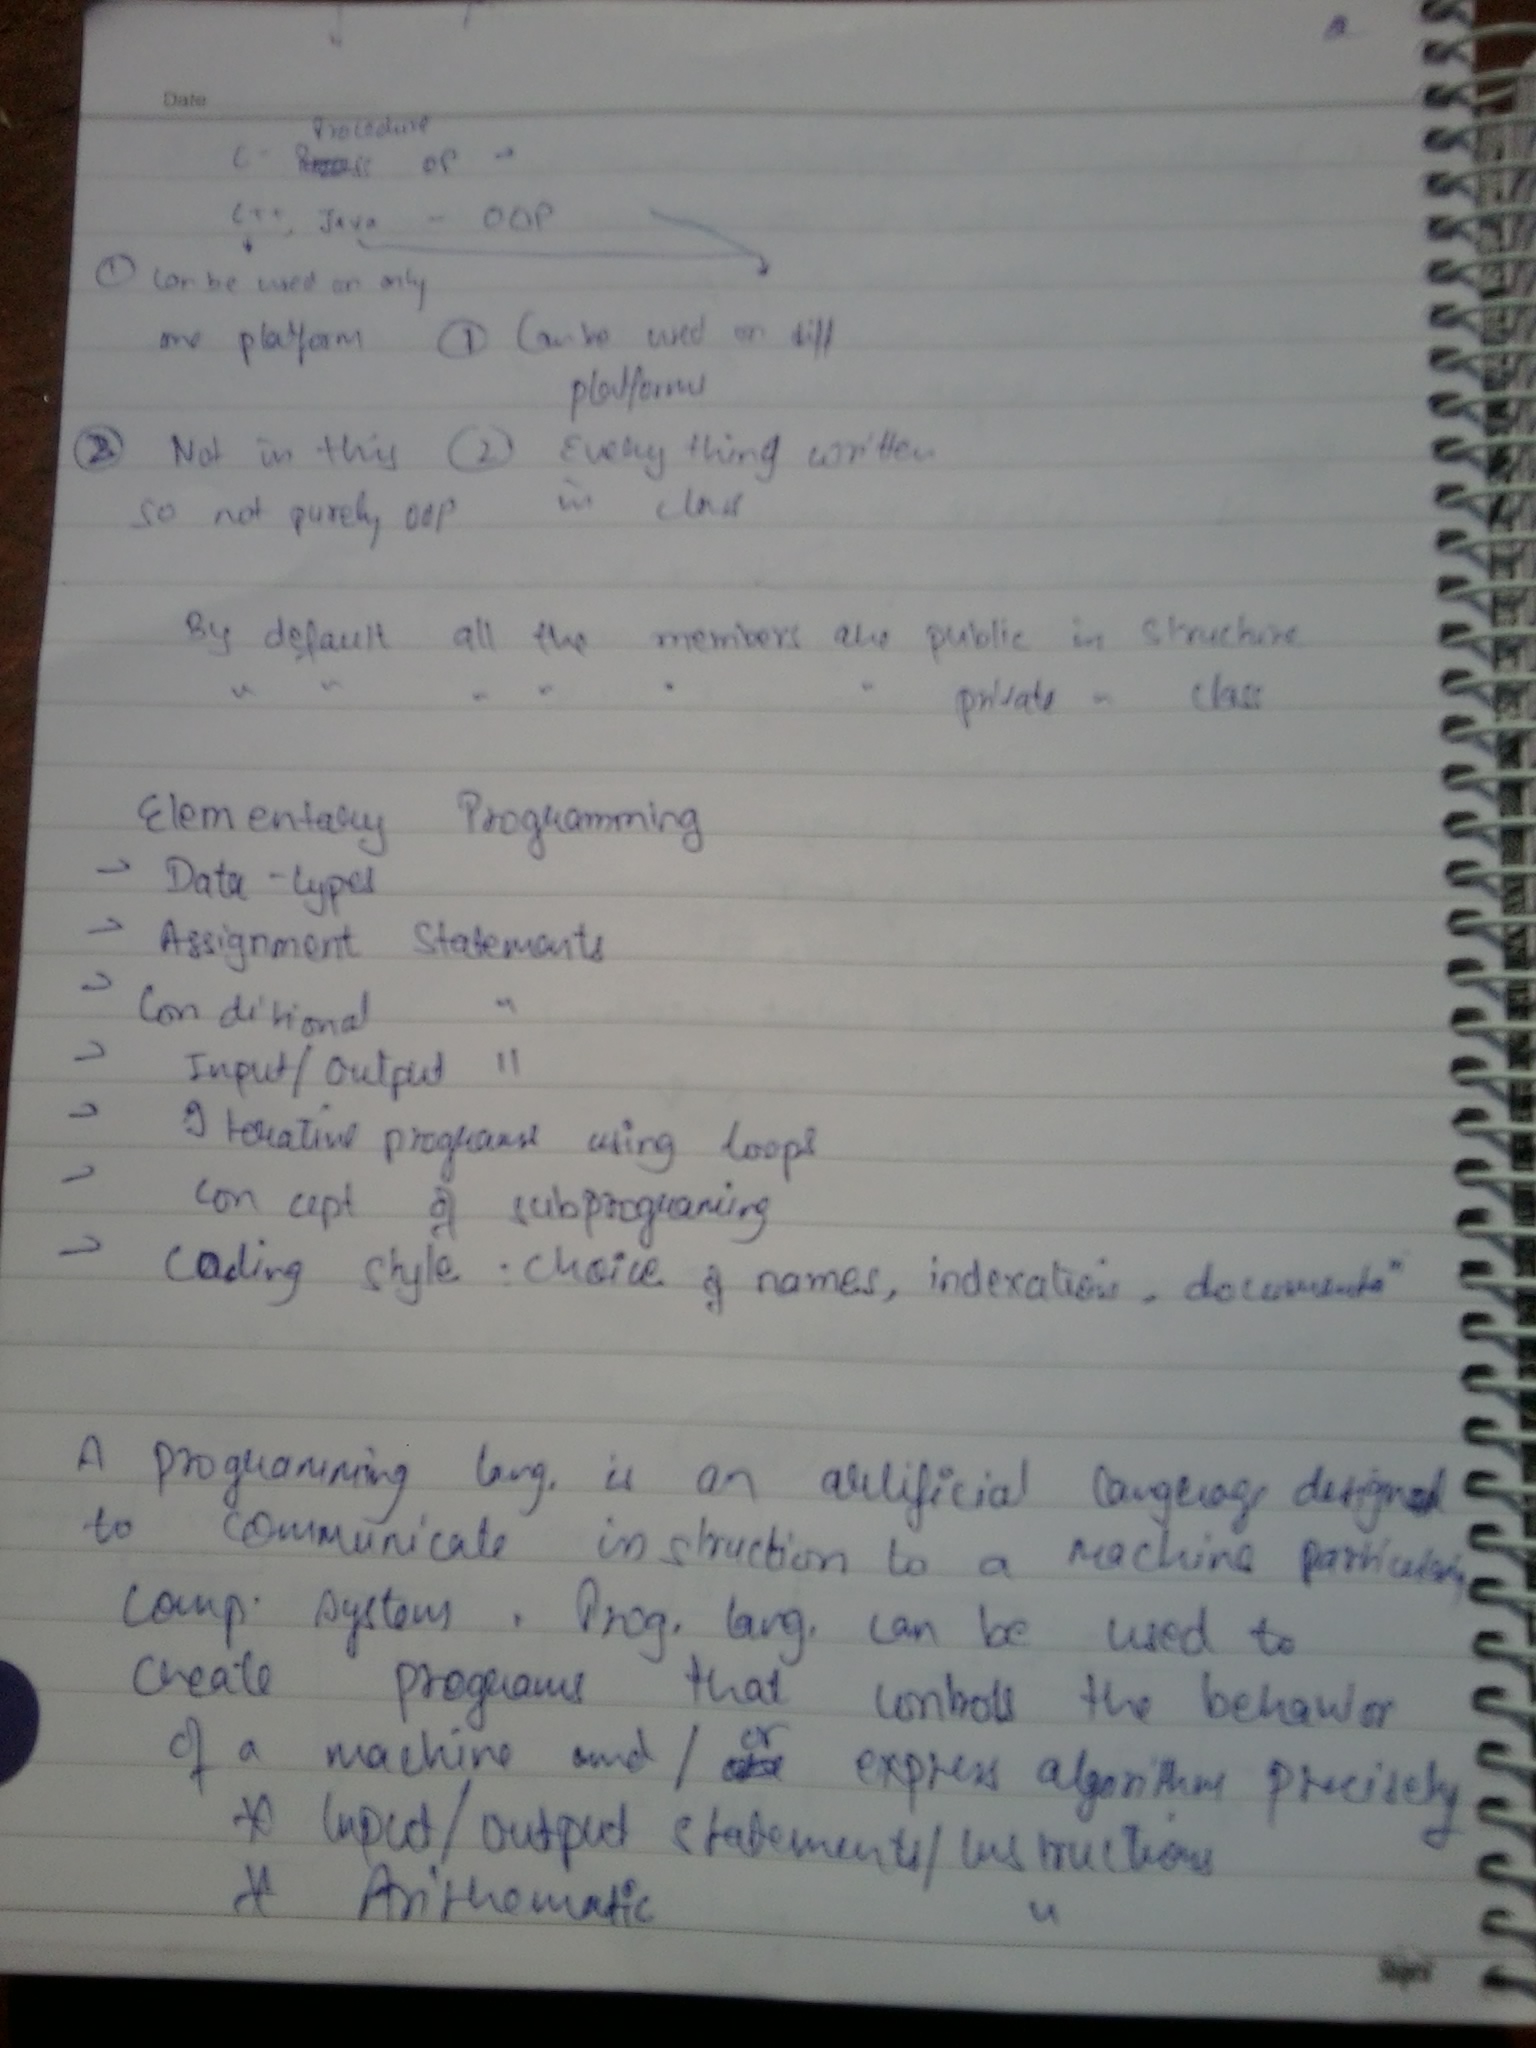 Date
Procedure
C - OP →
C++, Java - OOP
① Can be used on only
one platform ① Can be used on diff
platforms
② Not in this ② Every thing written
so not purely OOP in class
By default all the members are public in structure
" " " " " " private " class
Elementary Programming
→ Data-types
→ Assignment Statements
→ Conditional "
→ Input/Output "
→ Iterative programs using loops
→ Concept of subprograming
→ Coding style : choice of names, indexation, documentan
A programming lang. is an artificial language designed
to communicate instruction to a machine particularly
comp. system. Prog. lang. can be used to
create programs that controls the behavior
of a machine and / or express algorithm precisely
* Input/output statements/instructions
* Arithematic "